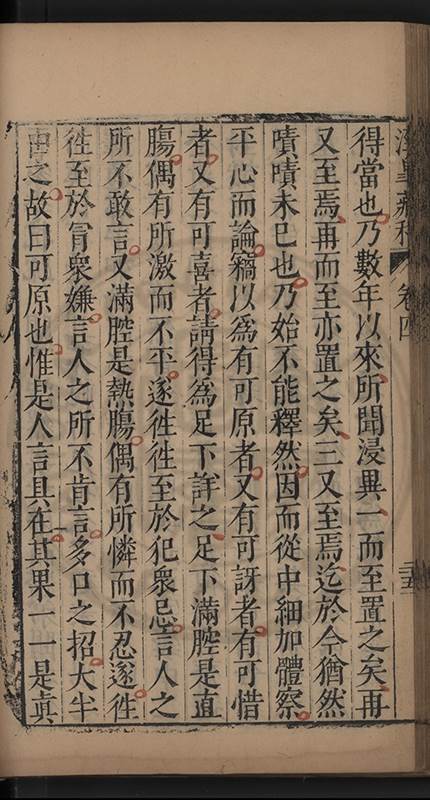 涇臯藏稿 卷四 三十五
得當也乃數年以來所聞浸異一而至置之矣再
又至焉再而至亦置之矣三又至焉迄於今猶然
嘖嘖未已也乃始不能釋然因而從中細加體察
平心而論竊以為有可原者又有可訝者有可惜
者又有可喜者請得為足下詳之足下滿腔是直
腸偶有所激而不平遂徃徃至於犯衆忌言人之
所不敢言又滿腔是熱腸偶有所憐而不忍遂徃
徃至於冐衆嫌言人之所不肯言多口之招大半
由之故曰可原也惟是人言具在其果一一是眞